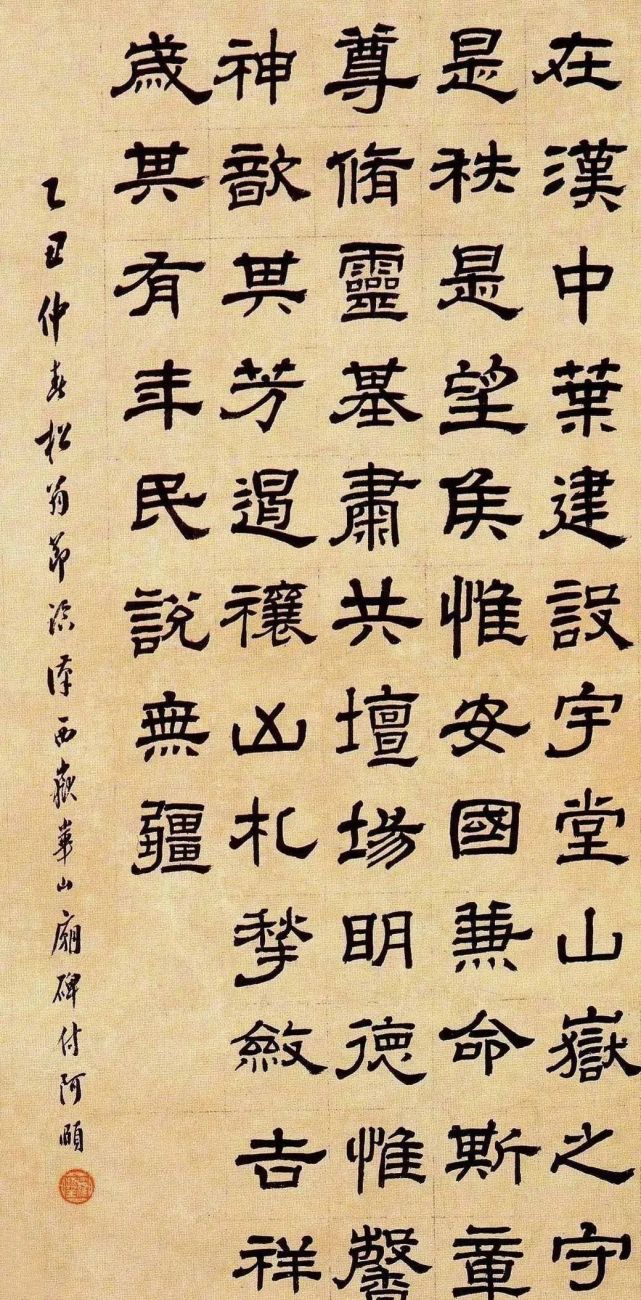 在漢中葉建設宇堂山嶽之守
是秩是望侯惟安國兼命斯章
尊脩靈基肅共壇場明德惟馨
神歆其芳遏禳凶札揫斂吉祥
歲其有年民說無疆
乙丑仲春松翁節臨漢西嶽華山廟碑付阿頤